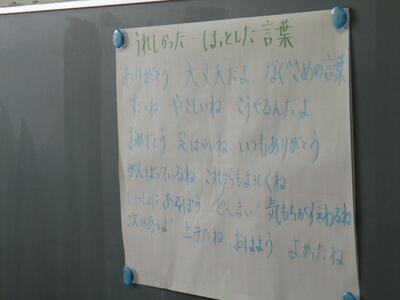 うれしかった・ほっとした言葉
ありがとう 大丈夫だよ なぐさめの言葉
すごいね やさしいね こうやるんだよ
おめでとう 足はやいね いつもありがとう
がんばっているね これからもよろしくね
いっしょにあそぼう どんまい 気もちが伝わるね
次があるよ 上手だね おはよう よかったね